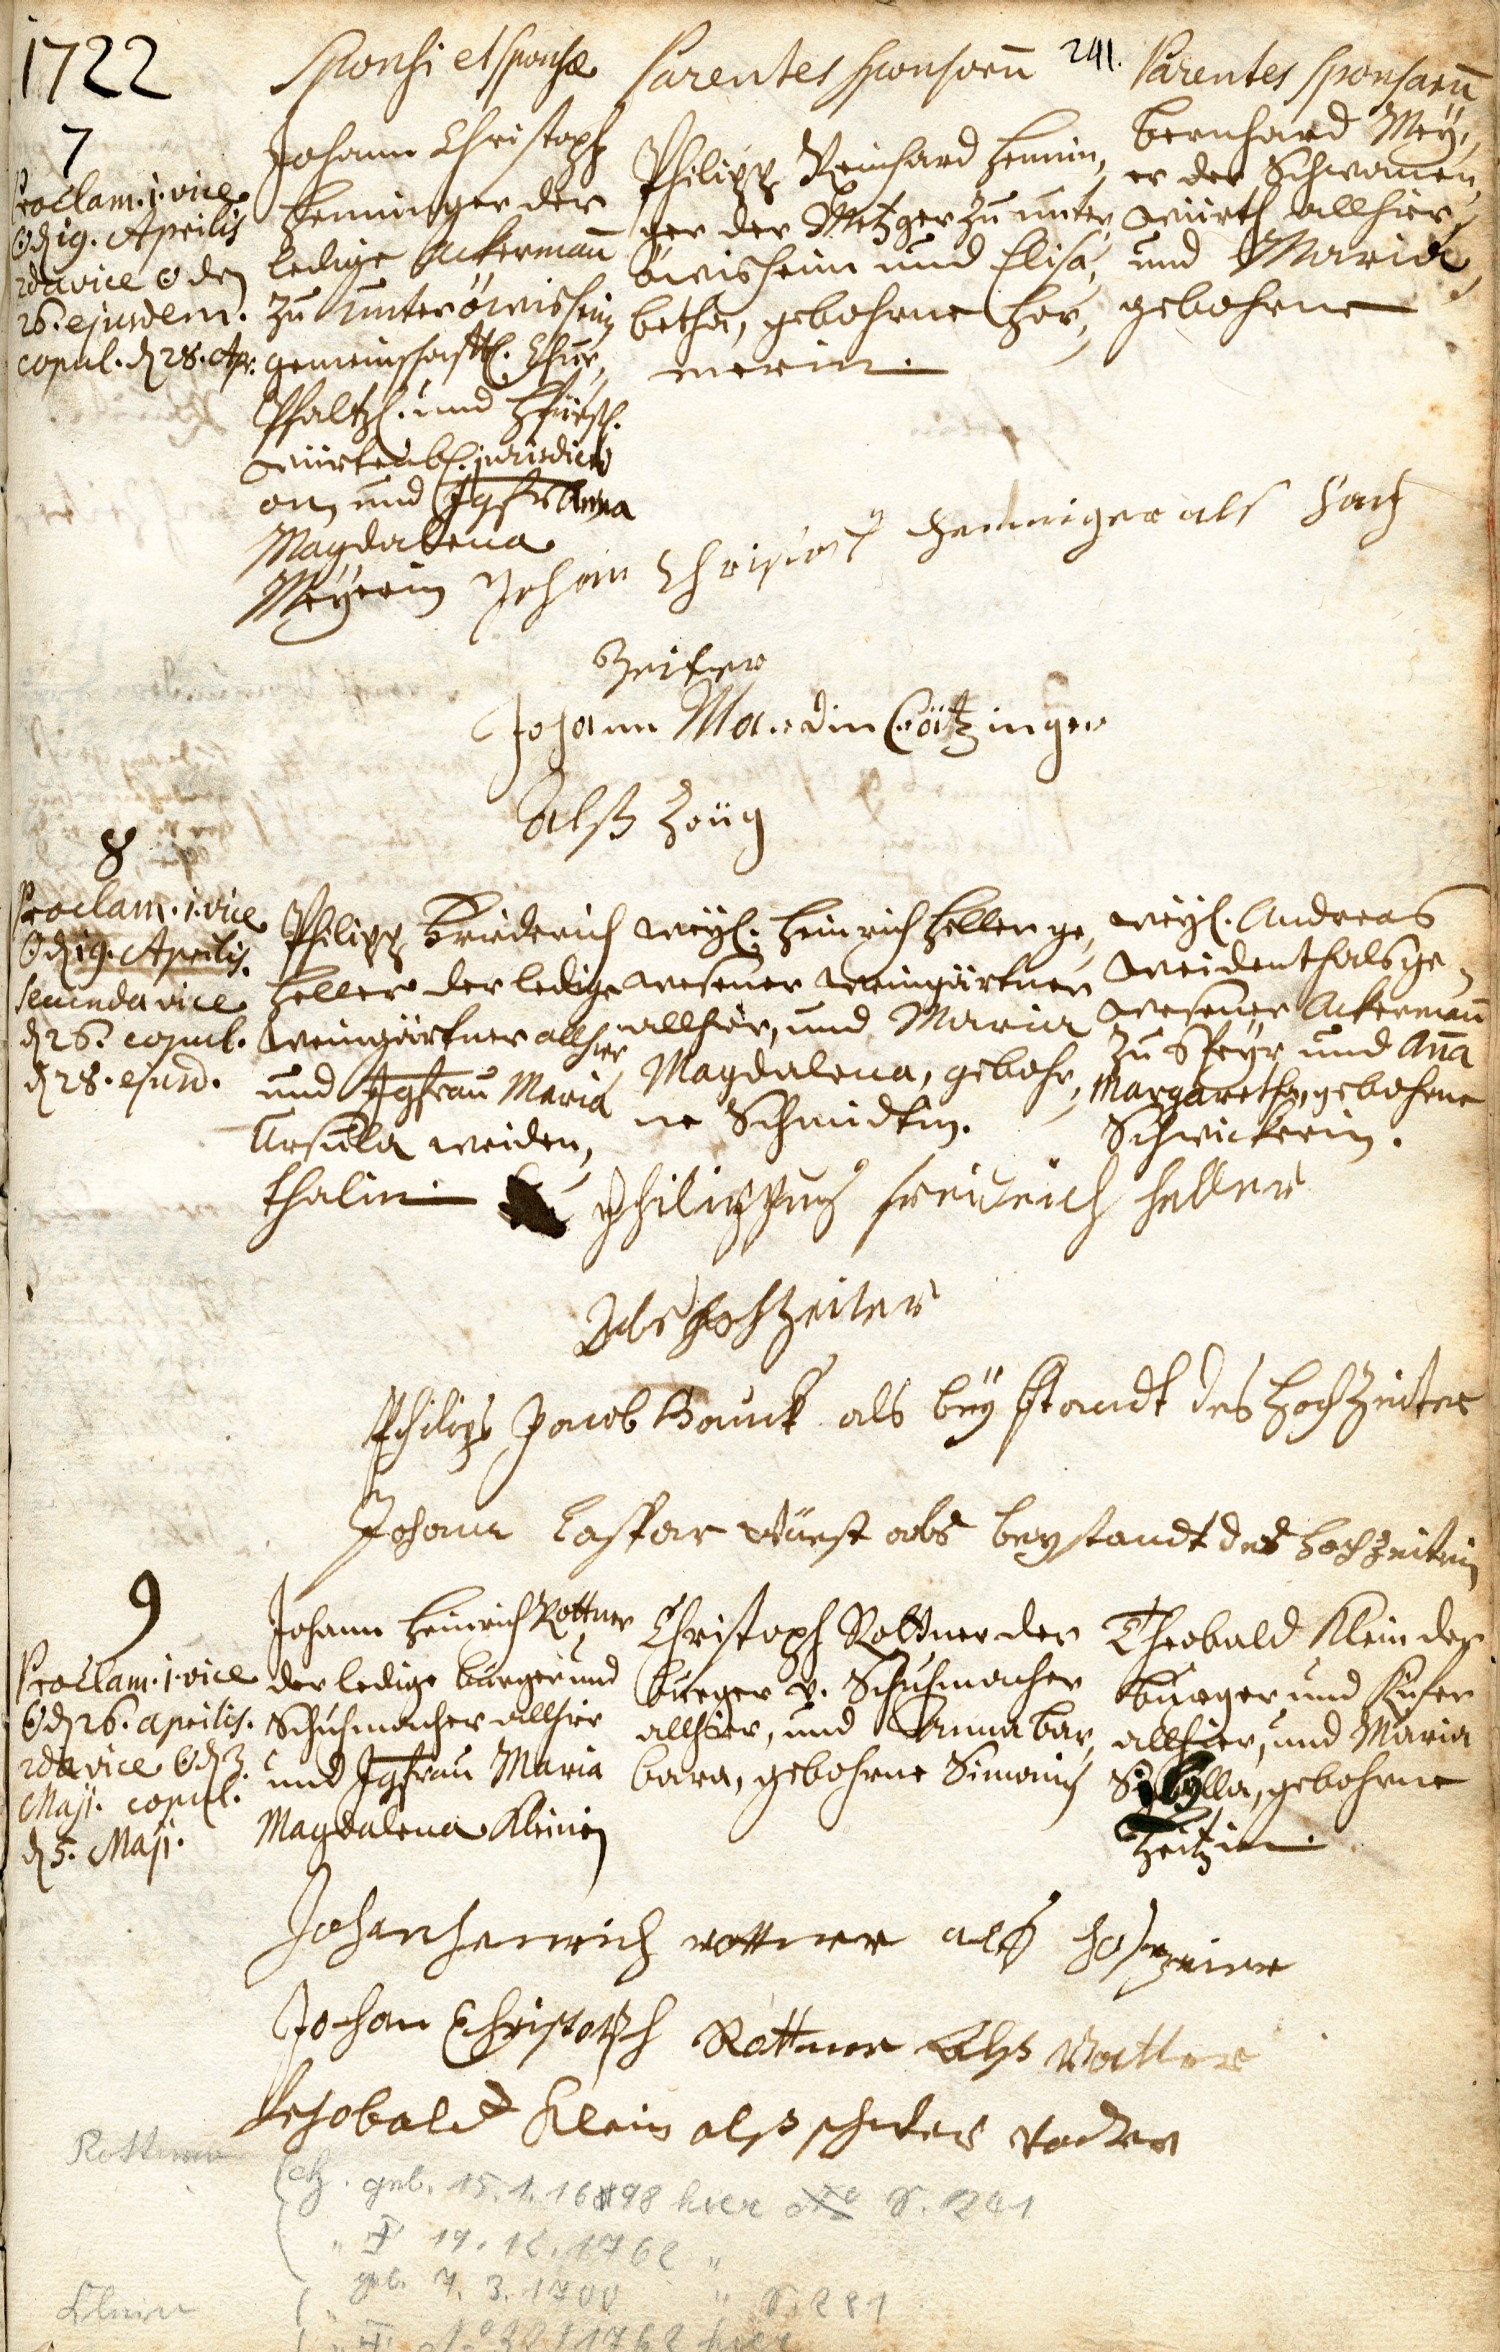 1722
Sponsi et sponsæ
Parentes sponsorū
241.
Parentes sponsarū
7
Proclam. 1. vice
19. Aprilis
2da vice den
26. ejusdem.
copul. d 28. Apr.
Johann Christoph
Henninger der
ledige Ackermañ
zu Unteröwisheim
gemeinschafftl. Chur,
Pfaltz. und Hfürstl.
Würtenb. jurisdicti
on, und Jgfr. Anna
Magdalena
Meÿerin
Philipp Reinhard Hennin,
ger der Metzger zu unter,
öwisheim und Elisa,
betha, gebohrne Hor,
nerin.
bernhard Meÿ,
er der Schwanen,
würth allhier,
und Maria,
gebohrne
Johan Christoff Henninger als Hoch
Zeiter
Johann Mardin Götzinger
alß Zeüg
8
Proclam. 1. vice
d 19. Aprilis.
secunda vice
d 26. copul.
d 28. ejusd.
Philipp Friderich
Heller der ledige
Weingärtner allhier
und Jgfrau Maria
Ursula Weiden,
thalin.
weÿl. Heinrich Heller ge,
wesener Weingärtner
allhier, und Maria
Magdalena, gebohr,
ne Schmidtin.
weÿl. Andreas
Weidenthals ge,
wesener Ackermañ
zu Speÿr und Aña
Margaretha, gebohrne
Schwickerin.
Philippus friderich Heller
Als Hochzeiter
Philips Jacob Bauck als beÿ standt des Hochzeiter
Johann Caspar Würst als beystandt des Hochzeiterin
9
Proclam. 1. vice
d 26. aprilis.
2da vice d 3.
Maji. copul.
d 5. Maji.
Johann Heinrich Rottner
der ledige burger und
Schuhmacher allhier
und Jgfrau Maria
Magdalena Kleinin
Christoph Rottner der
burger v. Schuhmacher
allhier, und Anna bar,
bara, gebohrne Simonin
Theobald Klein der
burger und Küfer
allhier, und Maria
Sibylla, gebohrne
Zeitzin.
Johan henrich rottner als hochzeiter
Johan Christoph Rottner Alß Vatter
Dehobald Klein alß schwer vader
Rottner
geb. 15. 1. 1698 hier S. 241
" † 19. 12. 1762 "
Klein
geb. 7. 3. 1700 " S. 281
" † 1762 hier